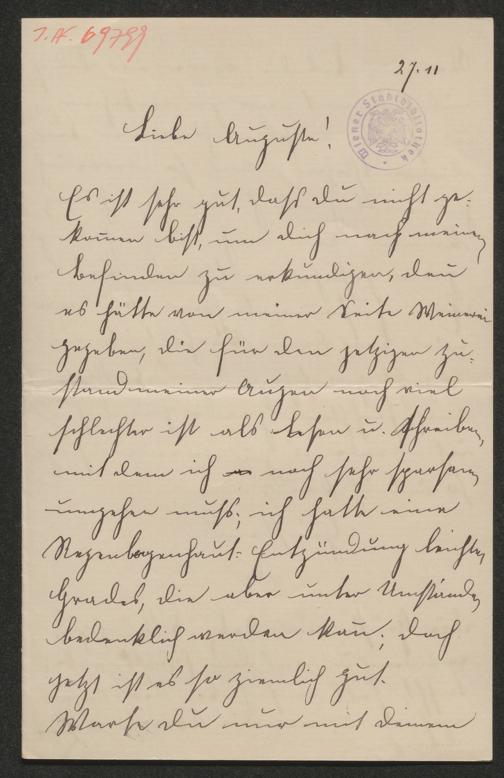 I.N. 69799
27. 11
Wiener Stadtbibliothek
Liebe Auguste!
Es ist sehr gut, dass du nicht ge-
kom̄en bist, um dich nach meinem
Befinden zu erkundigen, den̄
es hätte von meiner Seite Weinerei
gegeben, die für den jetzigen Zu-
stand meiner Augen noch viel
schlechter ist als Lesen u. Schreiben,
mit dem ich noch sehr sparsam
umgehen muss; ich hatte eine
Regenbogenhaut-Entzündung leichten
Grades, die aber unter Umständen
bedenklich werden kan̄; doch
jetzt ist es so ziemlich gut.
Warte du nur mit deinem